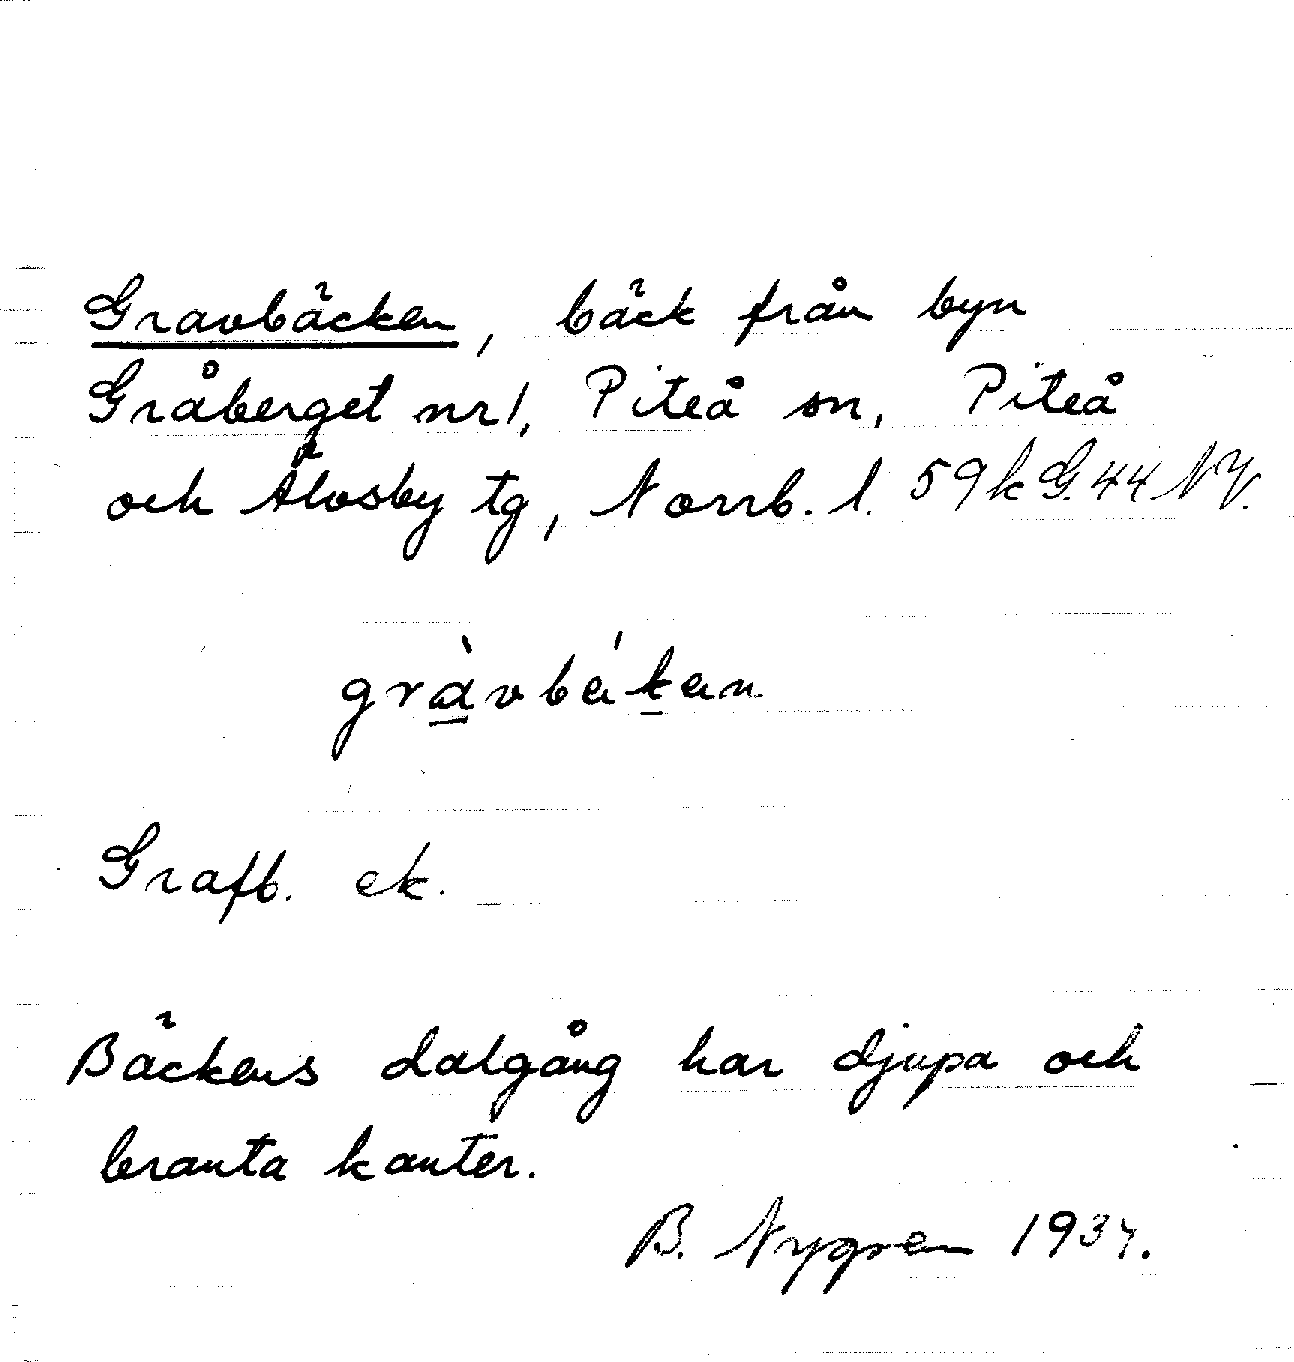 Gravbäcken, bäck från byn
Gråberget nr 1, Piteå sn, Piteå
och Älvsby tg, Norrb. l. 59 k G. 44 NV.
gràvbékan
Grafb. ek.
Bäckens dalgång har djupa och
branta kanter.
B. Nygren 1934.